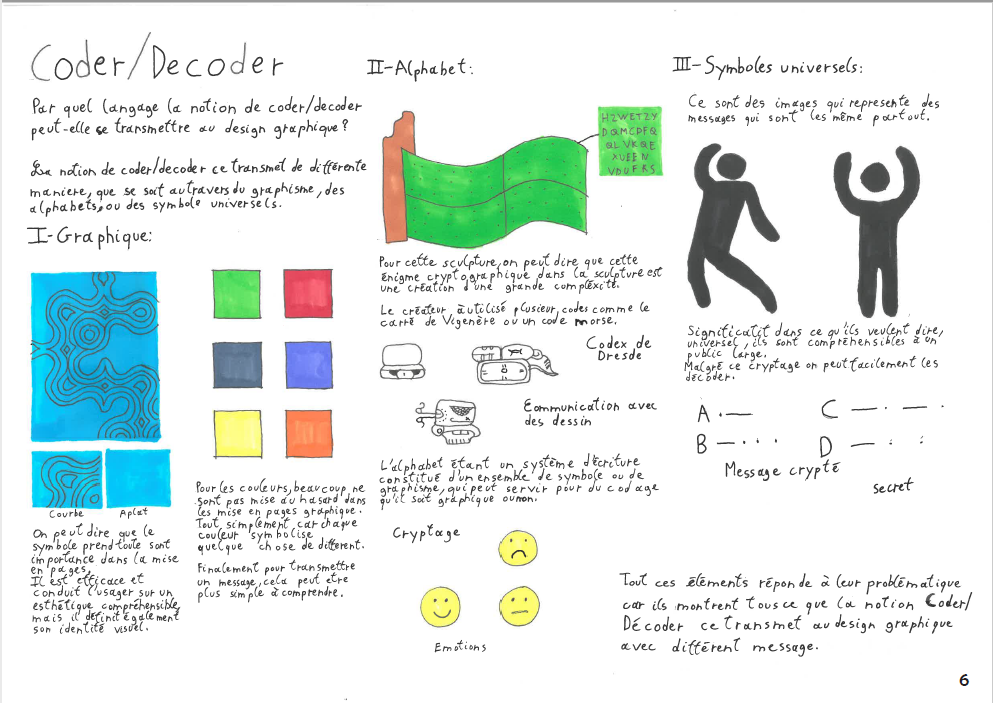 Coder/Decoder
Par quel langage la notion de coder/decoder
peut-elle se transmettre au design graphique?
La notion de coder/decoder ce transmet de différente
maniere, que se soit autravers du graphisme, des
alphabets, ou des symbole universels.
I-Graphique:
Courbe
Aplat
On peut dire que le
symbole prend toute sont
importance dans la mise
en pages,
Il est efficace et
conduit l'usager sur un
esthétique compréhensible,
mais il définit également
son identité visuel.
Pour les couleurs, beaucoup ne
sont pas mise au hasard dans
les mise en pages graphique.
Tout simplement car chaque
couleur symbolise
quelque chose de different.
Finalement pour transmettre
un message, cela peut etre
plus simple à comprendre.
II-Alphabet:
HZWETZY
DQMCPFQ
QLVKQE
XUEEN
VDUFRS
Pour cette sculpture, on peut dire que cette
énigme cryptographique dans la sculpture est
une création d'une grande compléxité.
Le créateur à utilisé plusieur, codes comme le
carré de Vigenère ou un code morse.
Codex de
Dresde
Communication avec
des dessin
L'alphabet étant un système d'écriture
constitué d'un ensemble de symbole ou de
graphisme, qui peut servir pour du codage
qu'il soit graphique ou non.
Cryptage
Emotions
III-Symboles universels:
Ce sont des images qui represente des
messages qui sont les même partout.
Significatif dans ce qu'ils veulent dire,
universel, ils sont compréhensibles à un
public large.
Malgré ce cryptage on peut facilement les
décoder.
A ·—
C —·—·
B —···
D —··
Message crypté
secret
Tout ces éléments répond à leur problématique
car ils montrent tous ce que la notion Coder/
Décoder ce transmet au design graphique
avec différent message.
6